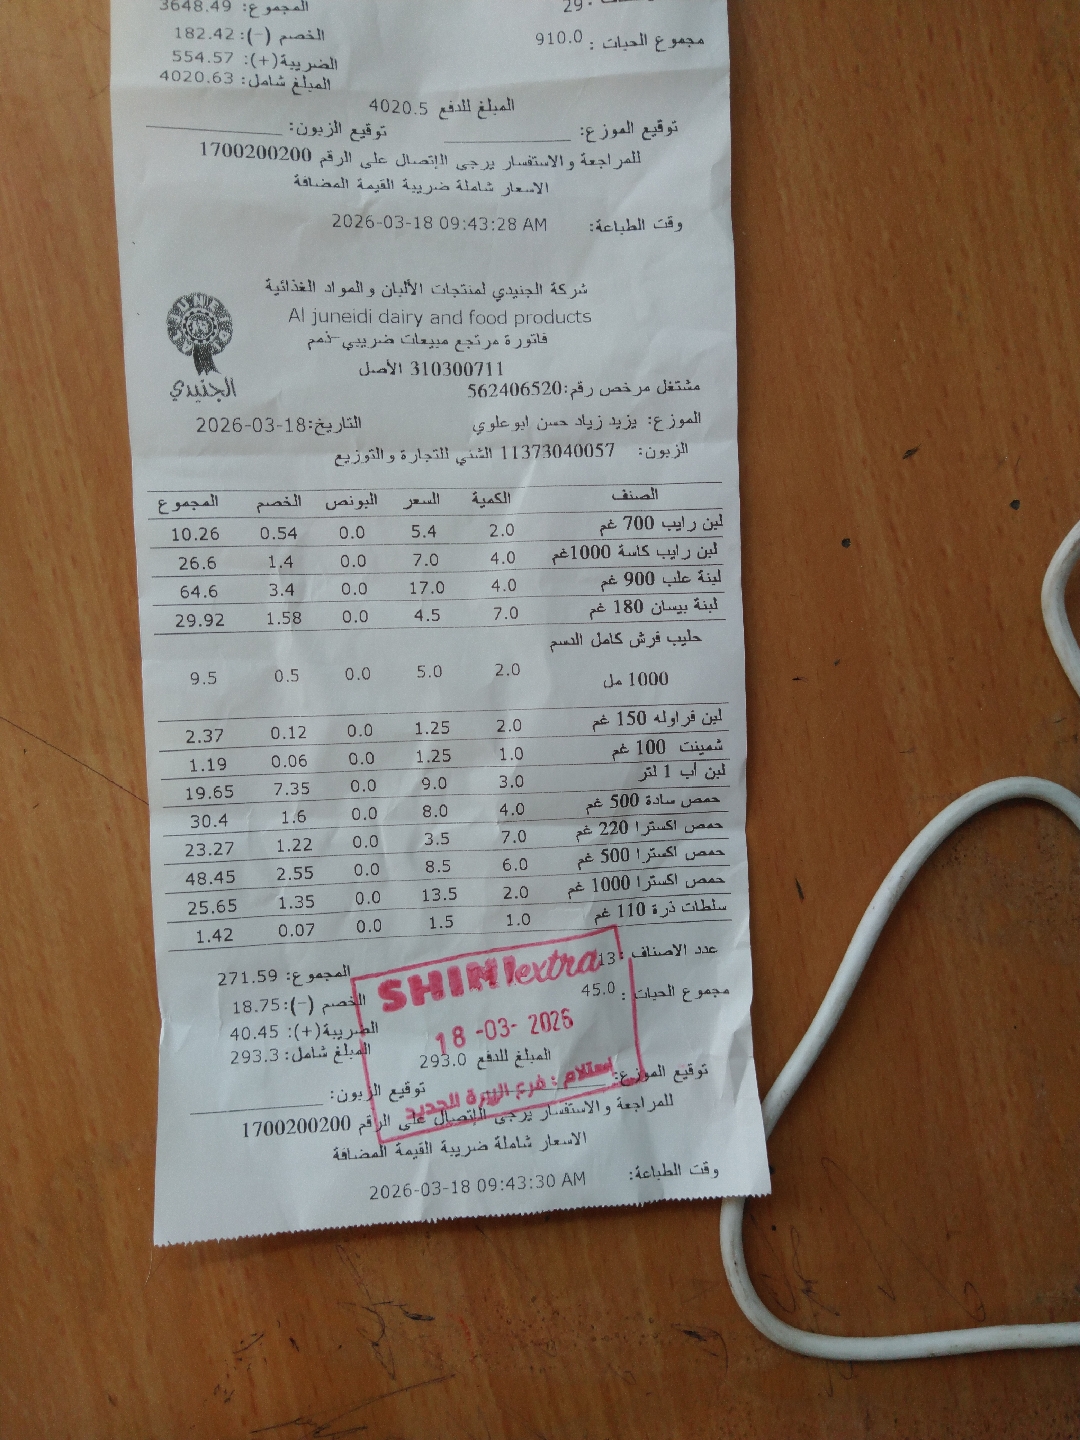 المجموع: 3648.49
29
الخصم (-): 182.42
مجموع الحبات : 910.0
الضريبة(+): 554.57
المبلغ شامل: 4020.63
المبلغ للدفع 4020.5
توقيع الموزع: ____________ توقيع الزبون: ____________
للمراجعة والاستفسار يرجى الإتصال على الرقم 1700200200
الاسعار شاملة ضريبة القيمة المضافة
وقت الطباعة: 2026-03-18 09:43:28 AM
شركة الجنيدي لمنتجات الألبان والمواد الغذائية
Al juneidi dairy and food products
فاتورة مرتجع مبيعات ضريبي-ذمم
310300711 الأصل
الجنيدي
مشتغل مرخص رقم:562406520
الموزع: يزيد زياد حسن ابوعلوي التاريخ:2026-03-18
الزبون: 11373040057 الشني للتجارة والتوزيع
الصنف الكمية السعر البونص الخصم المجموع
لبن رايب 700 غم 2.0 5.4 0.0 0.54 10.26
لبن رايب كاسة 1000غم 4.0 7.0 0.0 1.4 26.6
لبنة علب 900 غم 4.0 17.0 0.0 3.4 64.6
لبنة بيسان 180 غم 7.0 4.5 0.0 1.58 29.92
حليب فرش كامل الدسم
1000 مل 2.0 5.0 0.0 0.5 9.5
لبن فراوله 150 غم 2.0 1.25 0.0 0.12 2.37
شمينت 100 غم 1.0 1.25 0.0 0.06 1.19
لبن أب 1 لتر 3.0 9.0 0.0 7.35 19.65
حمص سادة 500 غم 4.0 8.0 0.0 1.6 30.4
حمص اكسترا 220 غم 7.0 3.5 0.0 1.22 23.27
حمص اكسترا 500 غم 6.0 8.5 0.0 2.55 48.45
حمص اكسترا 1000 غم 2.0 13.5 0.0 1.35 25.65
سلطات ذرة 110 غم 1.0 1.5 0.0 0.07 1.42
عدد الاصناف :13 المجموع: 271.59
مجموع الحبات : 45.0 الخصم (-):18.75
الضريبة(+): 40.45
المبلغ شامل: 293.3
المبلغ للدفع 293.0
توقيع الموزع: ____________ توقيع الزبون: ____________
للمراجعة والاستفسار يرجى الإتصال على الرقم 1700200200
الاسعار شاملة ضريبة القيمة المضافة
وقت الطباعة: 2026-03-18 09:43:30 AM
SHINI extra
18 -03- 2026
استلام : فرع البيرة الجديد